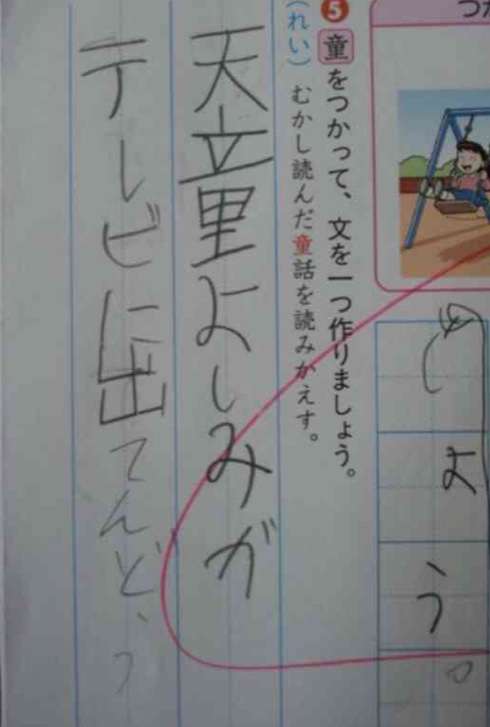 つか
❺童をつかって、文を一つ作りましょう。
(れい) むかし読んだ童話を読みかえす。
しよう。
天童よしみが
テレビに出てんど、う